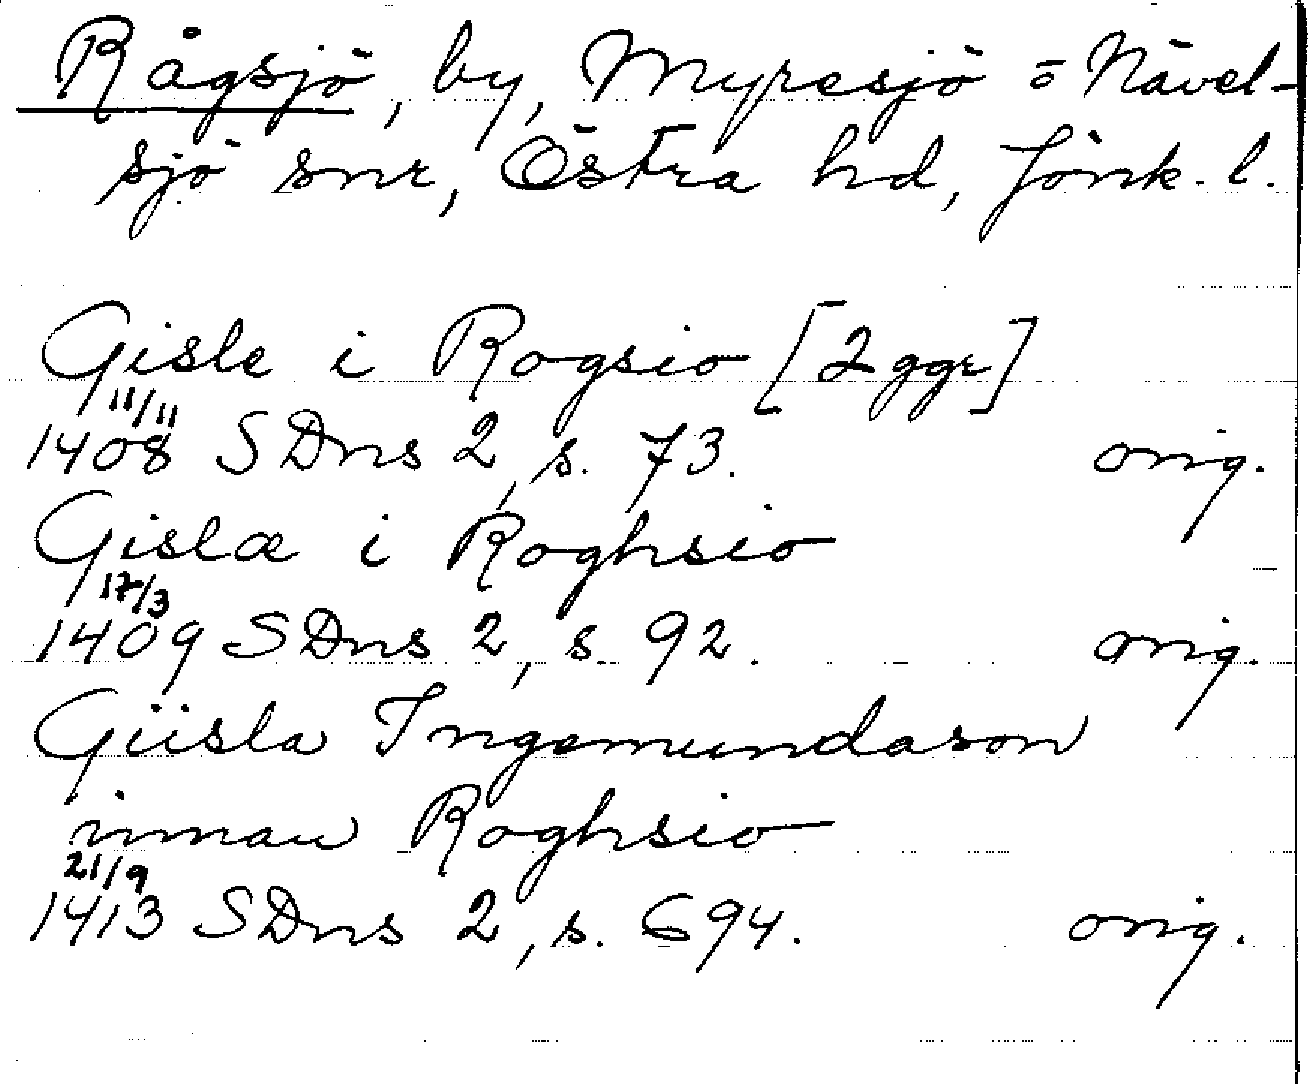 Rågsjö, by, Myresjö o Nävel-
sjö snr, Östra hd, Jönk. l.
Gisle i Rogsio [2 ggr]
11/11
1408 SDns 2, s. 73. orig.
Gislæ i Roghsio
17/3
1409 SDns 2, s. 92. orig.
Giisla Ingemundason
innan Roghsio
21/9
1413 SDns 2, s. 694. orig.